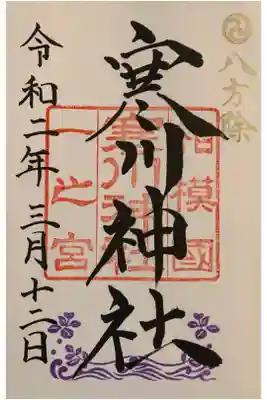 八方除
寒川神社
相模國
寒川神社
一之宮
令和二年三月十二日